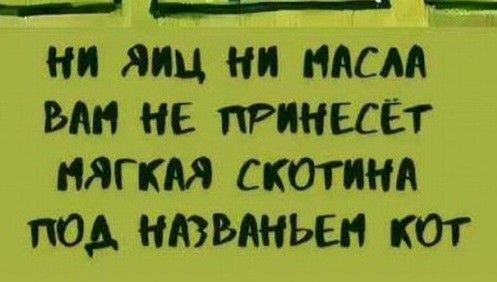 НИ ЯИЦ НИ МАСЛА
ВАМ НЕ ПРИНЕСЁТ
МЯГКАЯ СКОТИНА
ПОД НАЗВАНЬЕМ КОТ